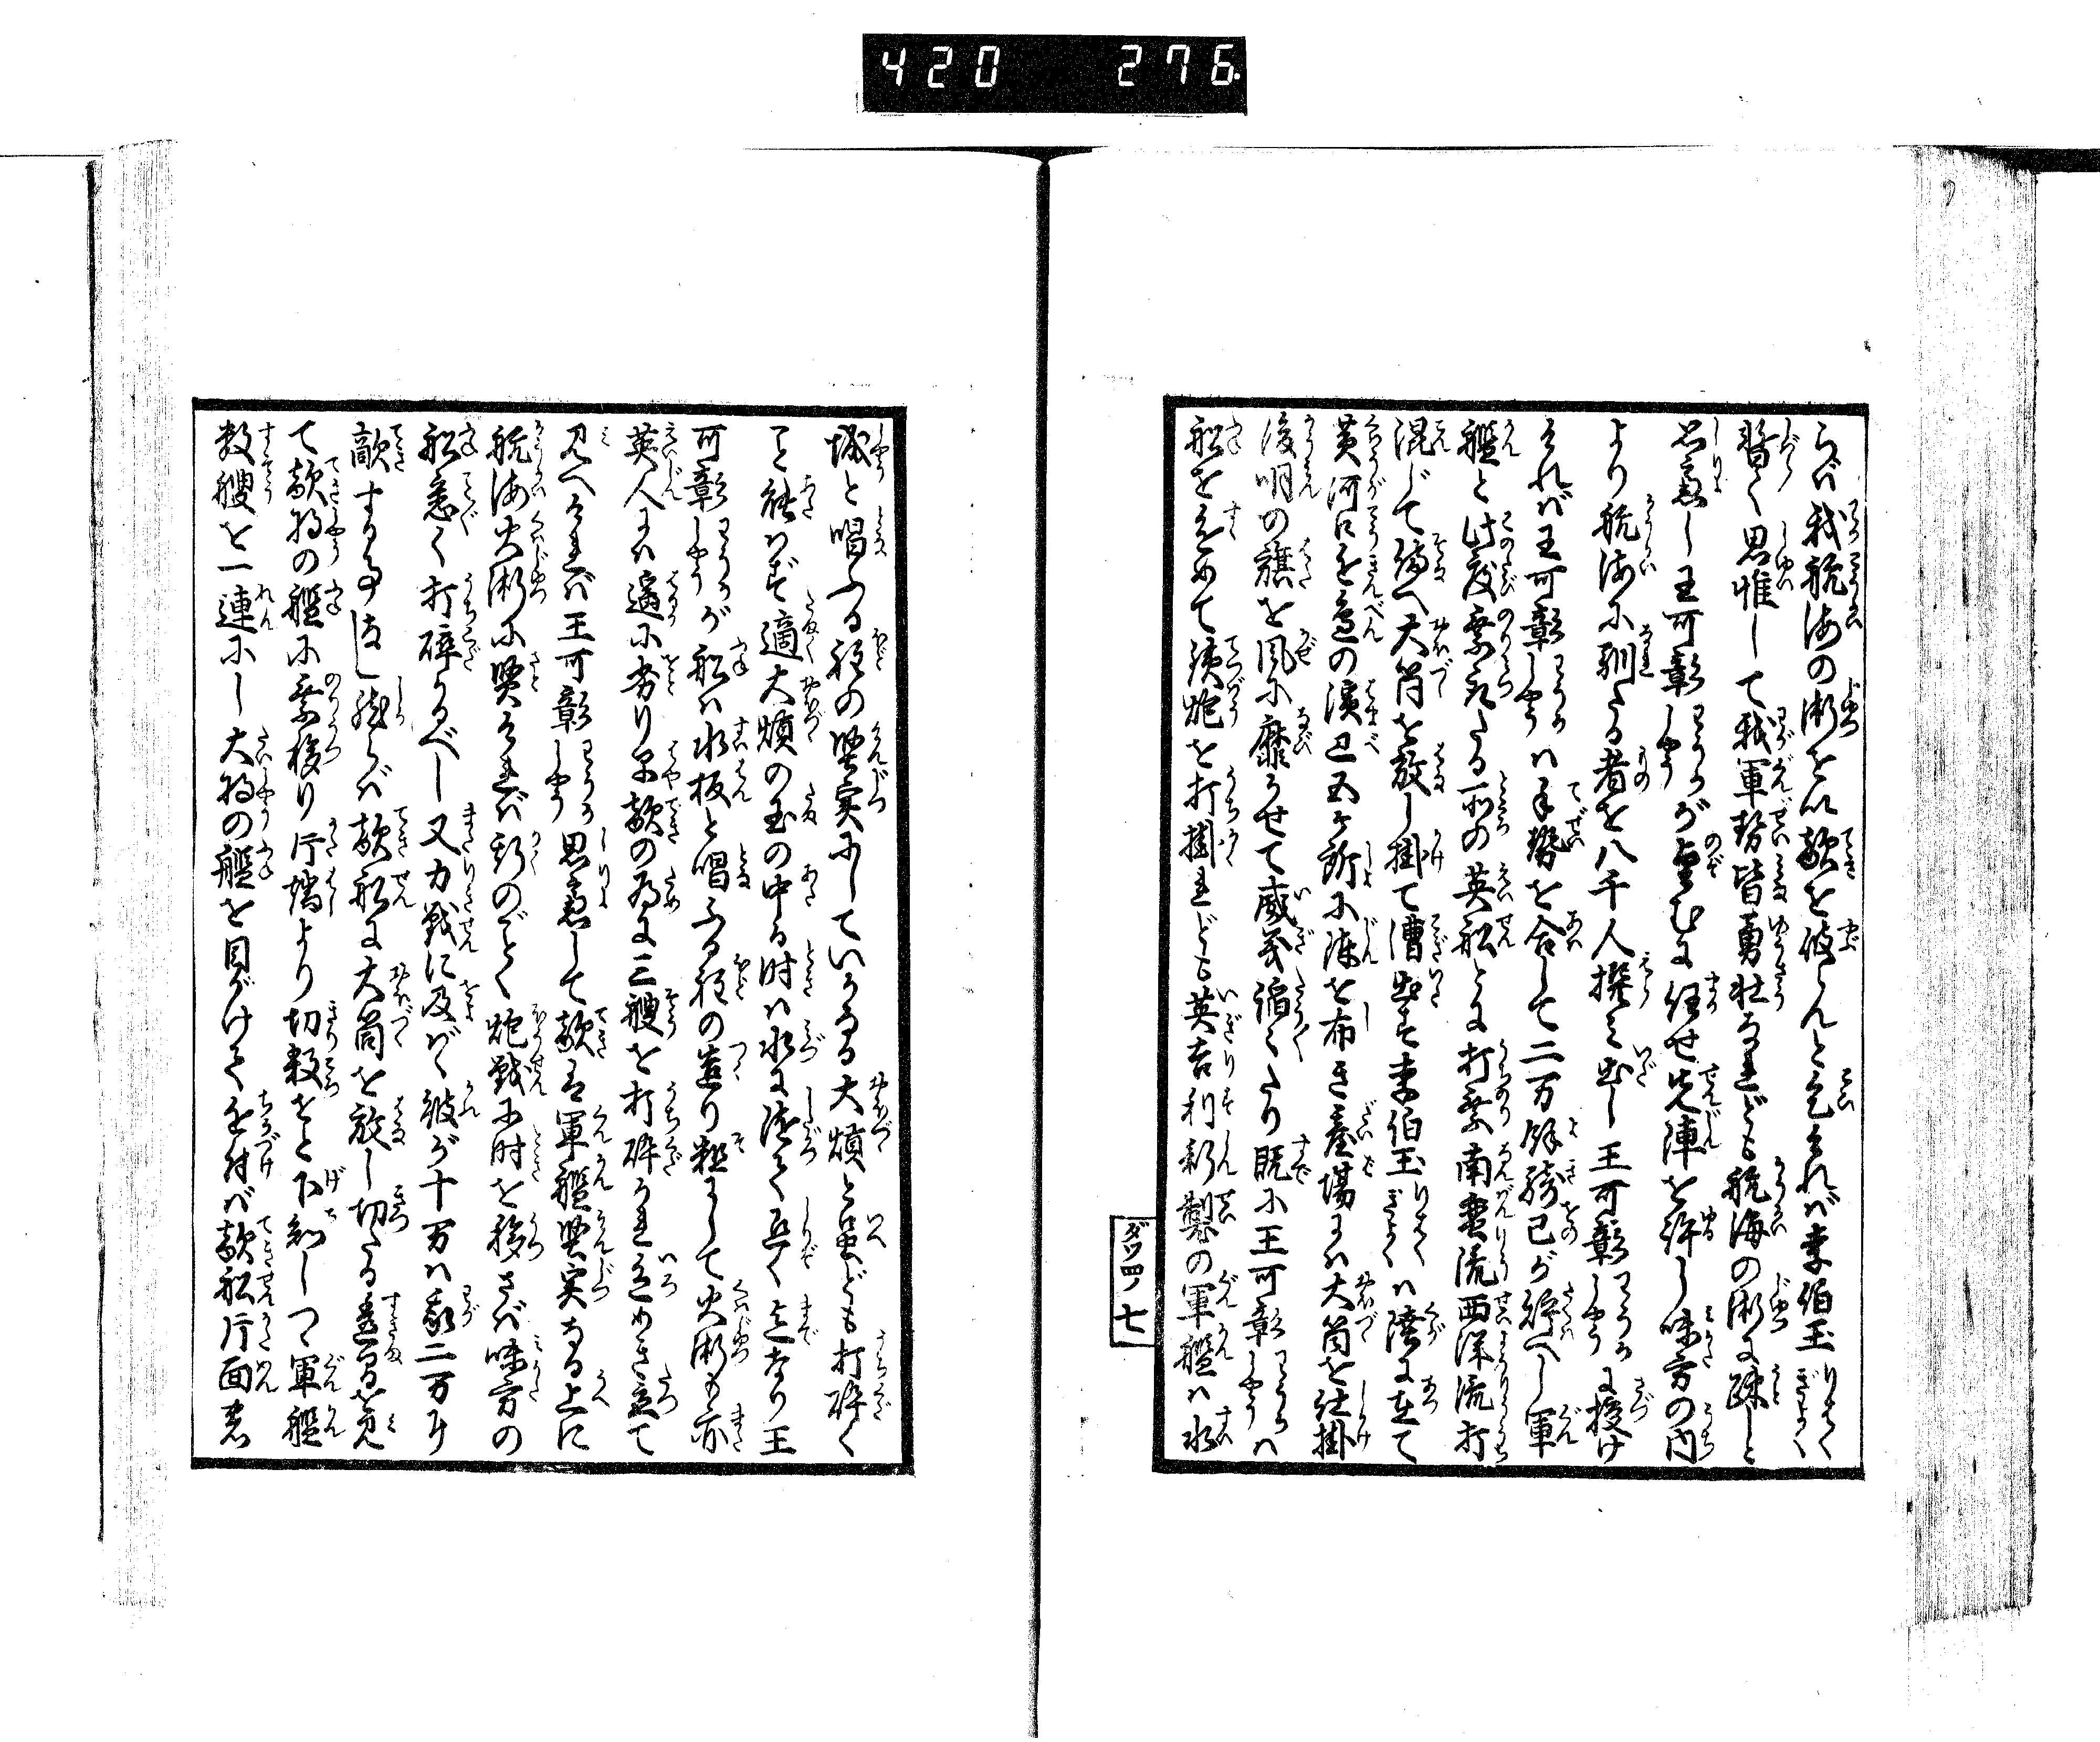 420 276.
らバ我航海の術を以敵を破らんと乞それバ李伯玉
暫く思惟して我軍勢皆勇壮なれども航海の術に疎しと
思慮し王可彰が望むに任せ先陣を許し味方の内
より航海に馴たる者を八千人撰み出し王可彰に授け
それバ王可彰ハ手勢を合して二万餘騎己が貯へし軍
艦と此度乗取たる所の英船とに打乗南蛮流西洋流打
混じて備へ大筒を放し掛て漕出す李伯玉ハ陸に在て
黄河口を邊の濱辺五ヶ所に陣を布き臺場にハ大筒を仕掛
後明の旗を風に靡かせて威武滔々たり既に王可彰ハ
船をすゝめて鉄炮を打掛れども英吉利新製の軍艦ハ水
ダツ四ノ 七
城と唱ふる程の堅実にしていかなる大煩と虽ども打砕く
こと能ハず適大煩の玉の中る時ハ水に沈て再く迄なり王
可彰が船ハ水板と唱ふる程の造り粗にして火術も亦
英人にハ遥に劣り早敵の為に三艘を打砕かれ色めき立て
見へけれバ王可彰思慮して敵は軍艦堅実なる上に
航海火術に賢けれバ斯のごとく炮戦に時を移さバ味方の
船悉く打砕かるべし又力戦に及バゞ彼が十万ハ我二万に
敵する事なし然らバ敵船に大筒を放し切たる透間を見
て敵将の艦に乗移り片端より切殺をと下知しつゝ軍艦
数艘を一連にし大将の艦を目がけて近付バ敵船片面悉